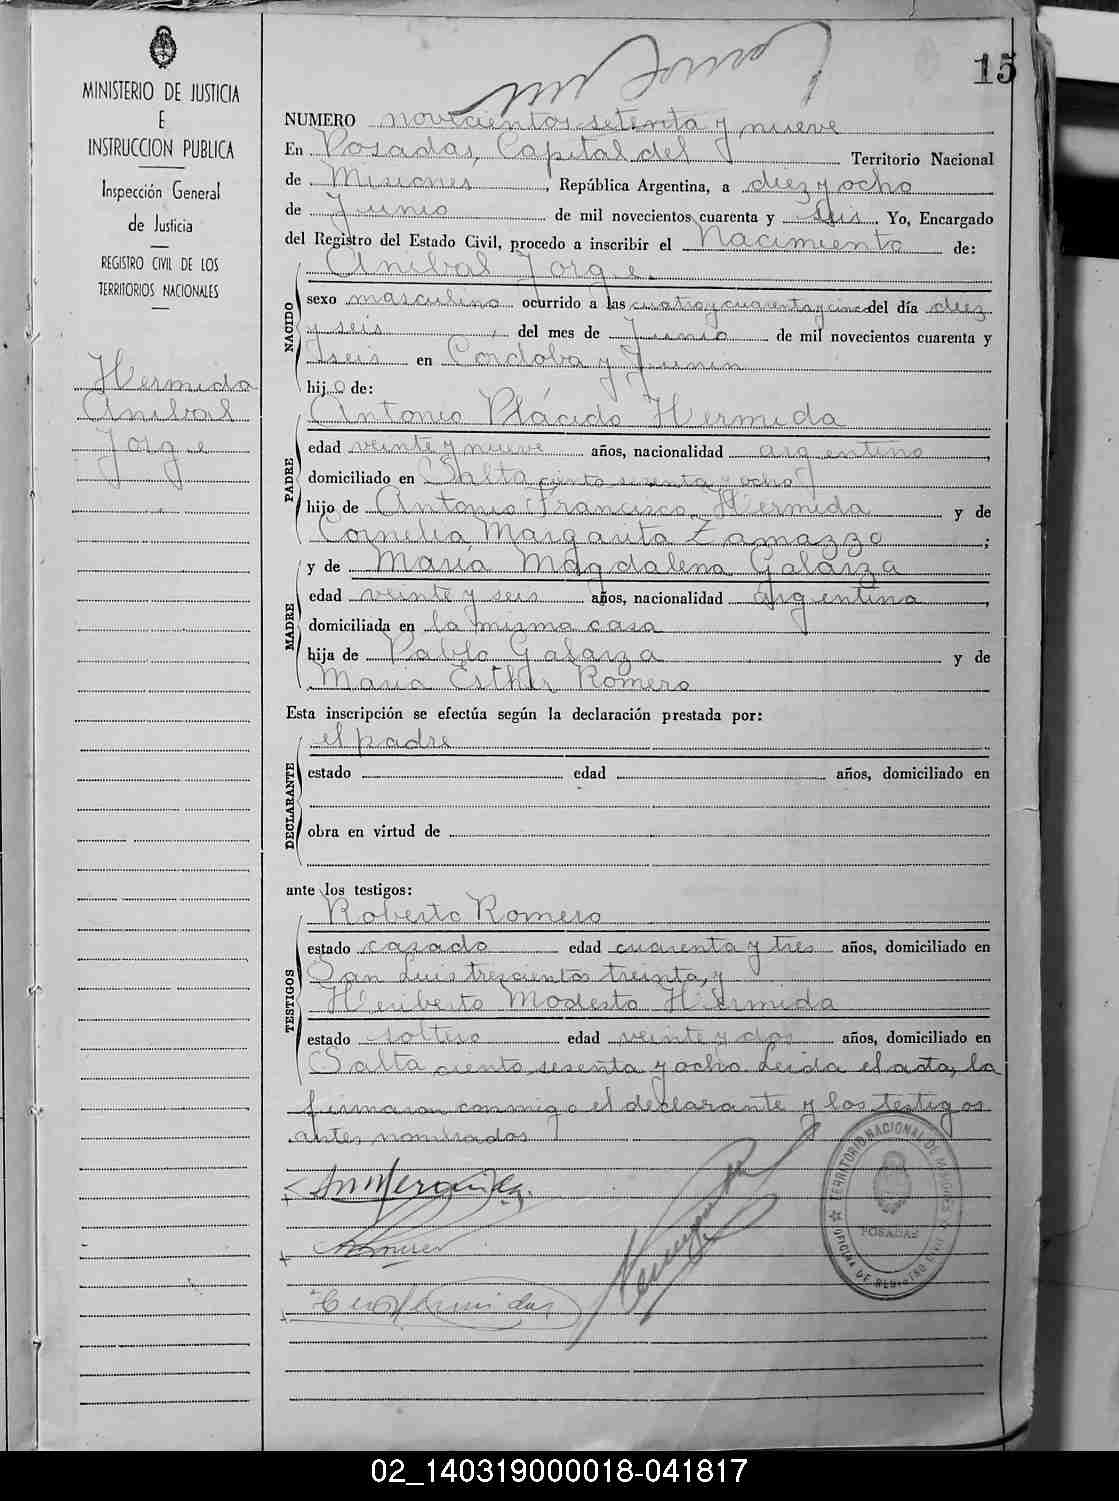 15
MINISTERIO DE JUSTICIA
E
INSTRUCCION PUBLICA
Inspección General
de Justicia
REGISTRO CIVIL DE LOS
TERRITORIOS NACIONALES
Hermida
Anibal
Jorge
NUMERO novecientos setenta y nueve
En Posadas, Capital del Territorio Nacional
de Misiones, República Argentina, a diez y ocho
de Junio de mil novecientos cuarenta y seis. Yo, Encargado
del Registro del Estado Civil, procedo a inscribir el Nacimiento de:
NACIDO
Anibal Jorge
sexo masculino ocurrido a las cuatro y cuarenta y cinco del día diez
y seis, del mes de Junio de mil novecientos cuarenta y
seis en Cordoba y Junin
hijo de:
PADRE
Antonio Plácido Hermida
edad veinte y nueve años, nacionalidad argentino,
domiciliado en Salta ciento sesenta y ocho
hijo de Antonio Francisco Hermida y de
Cornelia Margarita ;
MADRE
y de María Magdalena Galarza
edad veinte y seis años, nacionalidad argentina,
domiciliada en la misma casa
hija de Pablo Galarza y de
Maria Esther Romero
Esta inscripción se efectúa según la declaración prestada por:
DECLARANTE
el padre
estado edad años, domiciliado en
obra en virtud de
ante los testigos:
TESTIGOS
Roberto Romero
estado casado edad cuarenta y tres años, domiciliado en
San Luis trescientos treinta, y
Heriberto Modesto Hermida
estado soltero edad veinte y dos años, domiciliado en
Salta ciento sesenta y ocho. Leida el acta, la
firmaron conmigo el declarante y los testigos
antes nombrados
TERRITORIO NACIONAL DE MISIONES
POSADAS
OFICINA DE REGISTRO CIVIL
02_140319000018-041817